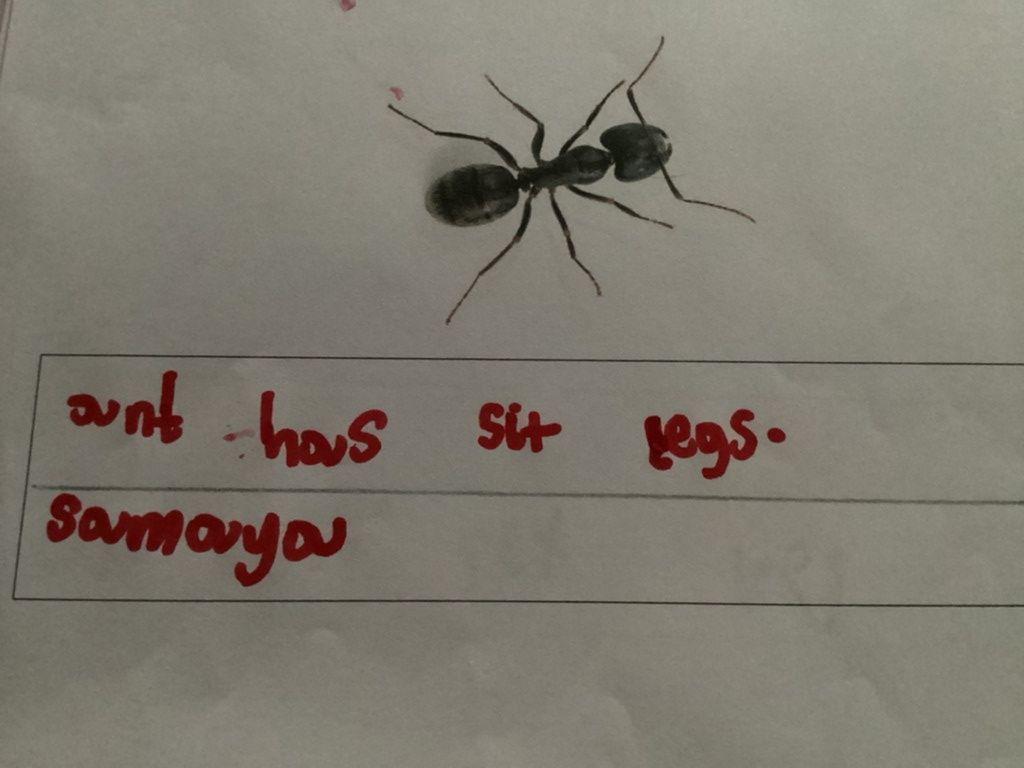 ant has sit legs.
samaya